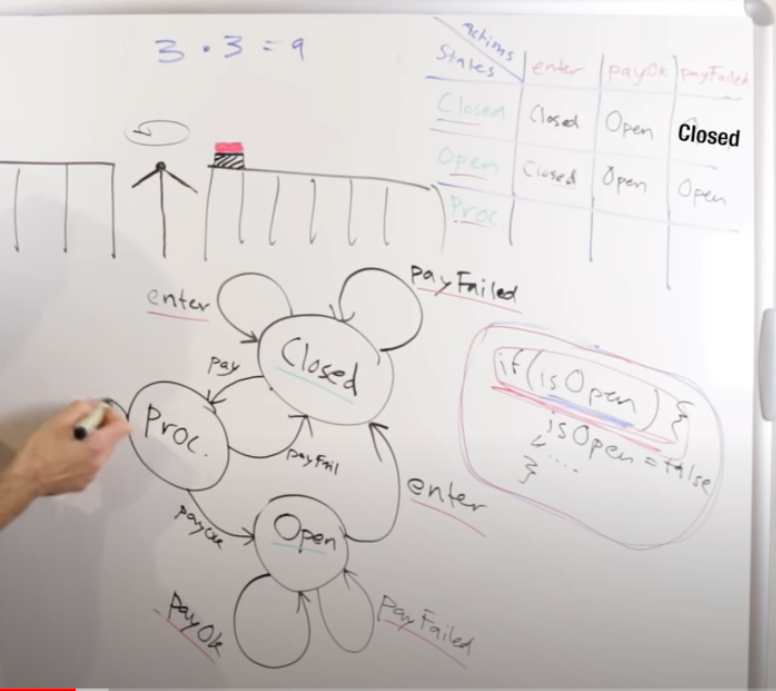 3 · 3 = 9
actions
States
enter
payOk
payFailed
Closed
Closed
Open
Closed
Open
Closed
Open
Open
Proc
enter
payFailed
Closed
pay
Proc.
payFail
enter
payOk
Open
payOk
payFailed
if (isOpen) {
isOpen = false
....
}